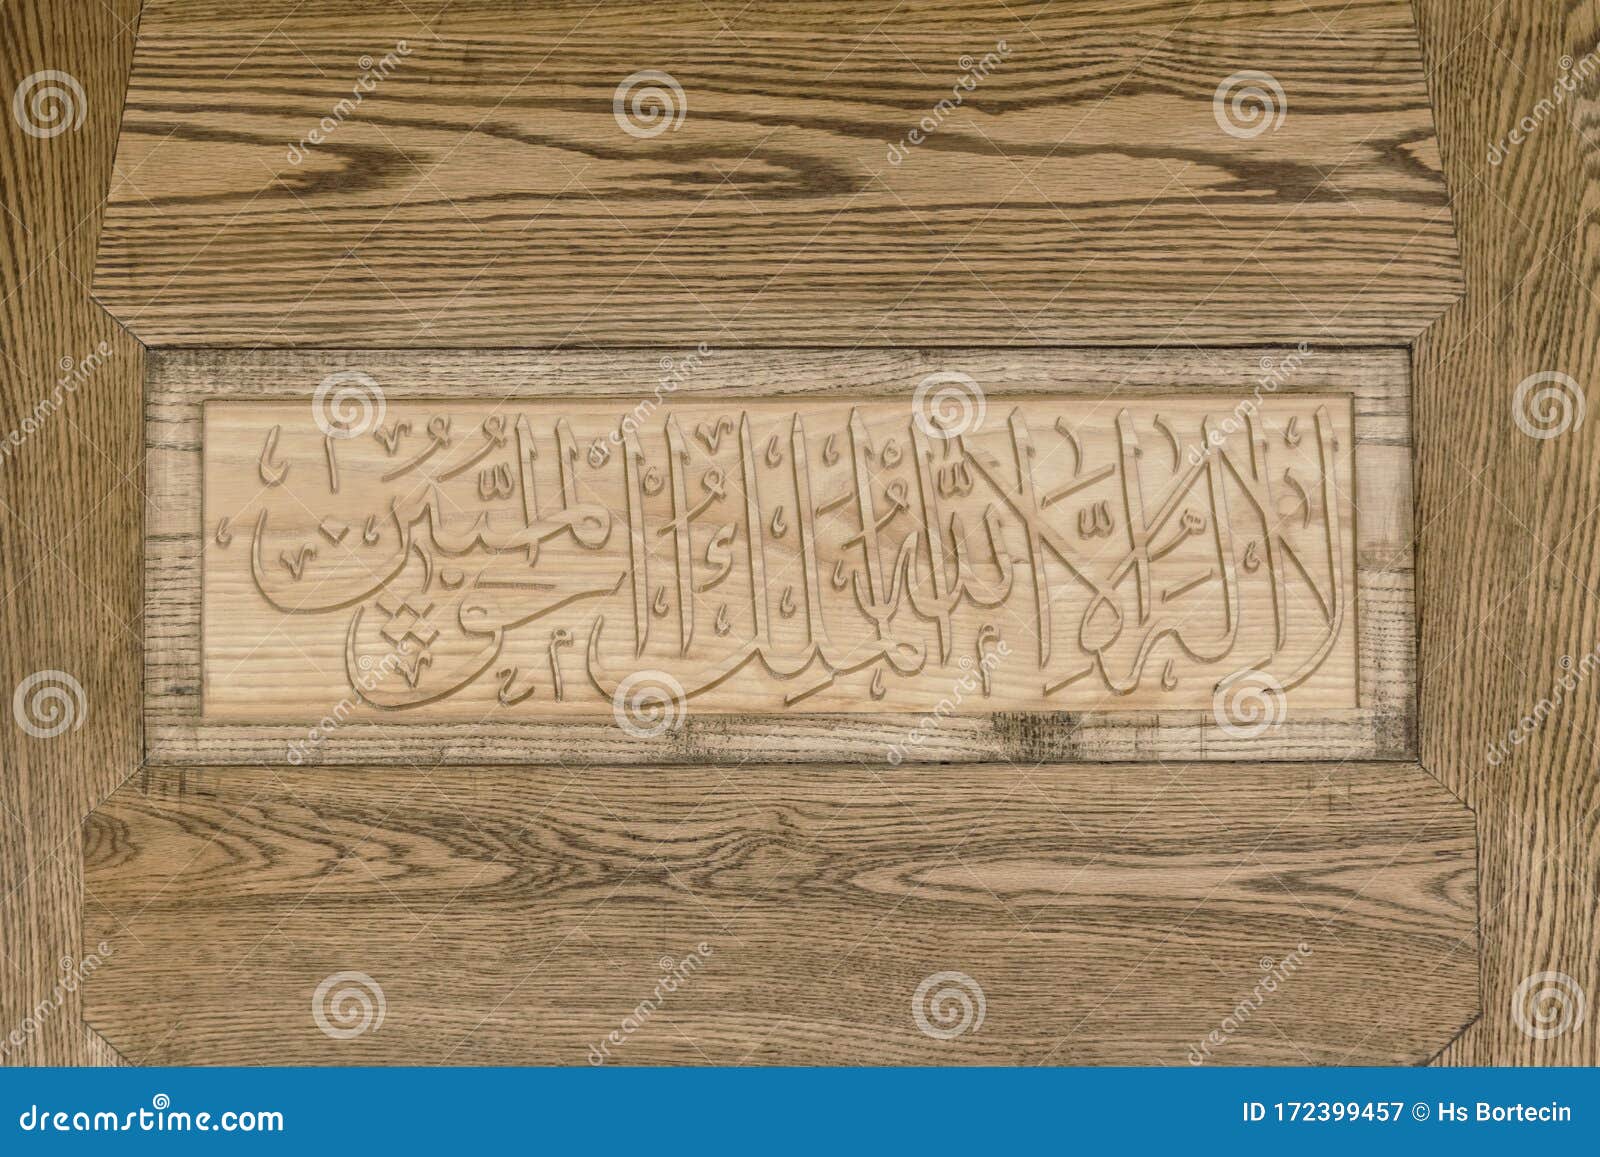 لَا إِلٰهَ إِلَّا اللّٰهُ الْمَلِكُ الْحَقُّ الْمُبِينُ
dreamstime.com
ID 172399457 © Hs Bortecin